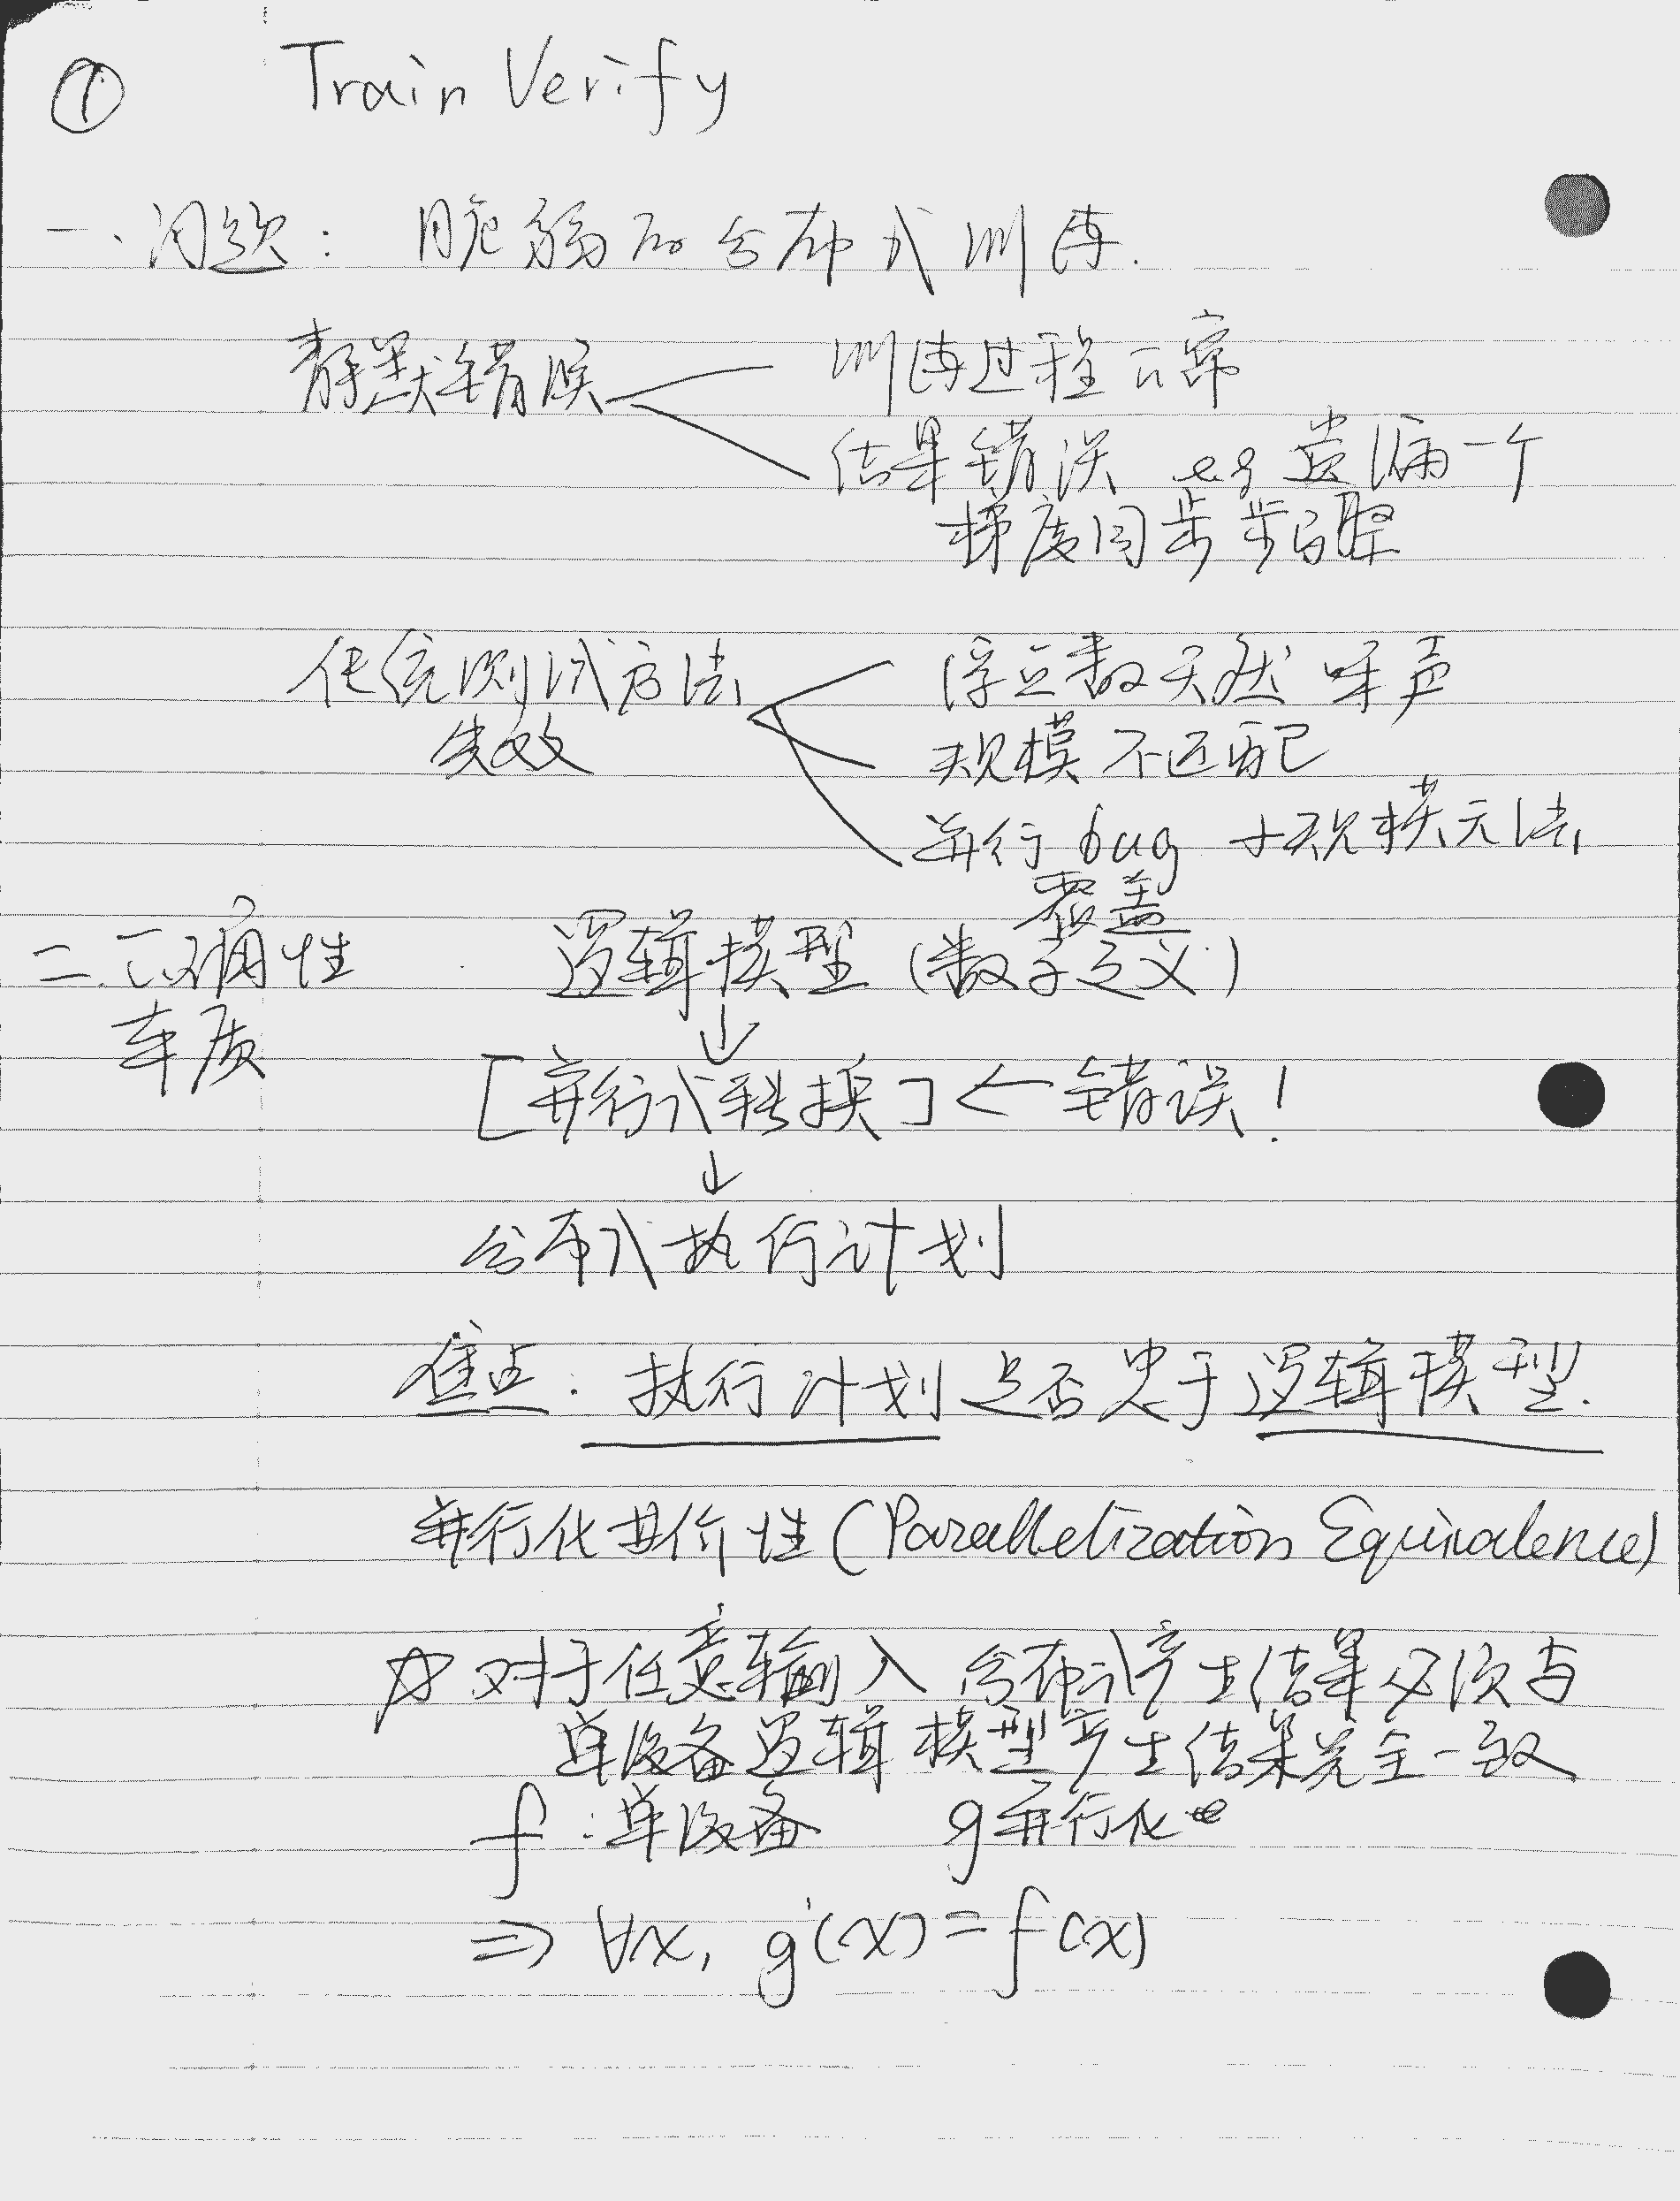 ① Train Verify
一、问题： 脆弱的分布式训练.
静默错误 训练过程正常
结果错误 eg 遗漏一个
梯度同步步骤
传统测试方法 浮点数天然噪声
失效 规模不匹配
并行bug 小规模无法
覆盖
二.正确性 逻辑模型 (数学定义)
本质 ↓
[并行式转换] ← 错误!
↓
分布式执行计划
焦点: 执行计划是否忠于逻辑模型.
并行化等价性 (Parallelization Equivalence)
☆ 对于任意输入 分布式产生结果必须与
单设备逻辑模型产生结果完全一致
f:单设备 g并行化
⇒ ∀x, g(x)=f(x)